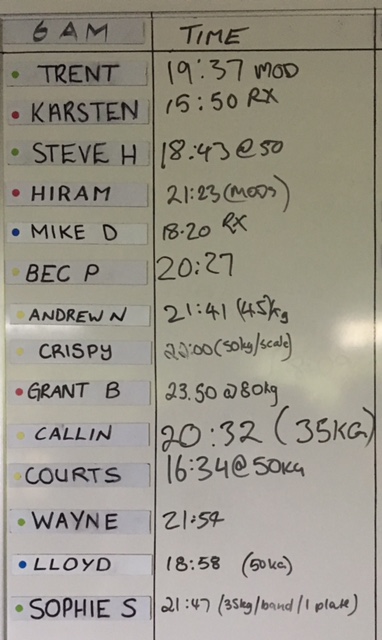 6 AM TIME
TRENT 19:37 MOD
KARSTEN 15:50 RX
STEVE H 18:43 @ 50
HIRAM 21:23 (MODS)
MIKE D 18.20 RX
BEC P 20:27
ANDREW N 21:41 (45)kg
CRISPY 22:00 (50kg/scale)
GRANT B 23.50 @ 80kg
CALLIN 20:32 (35KG)
COURTS 16:34 @ 50KG
WAYNE 21:54
LLOYD 18:58 (50KG)
SOPHIE S 21:47 (35kg/band/1 plate)